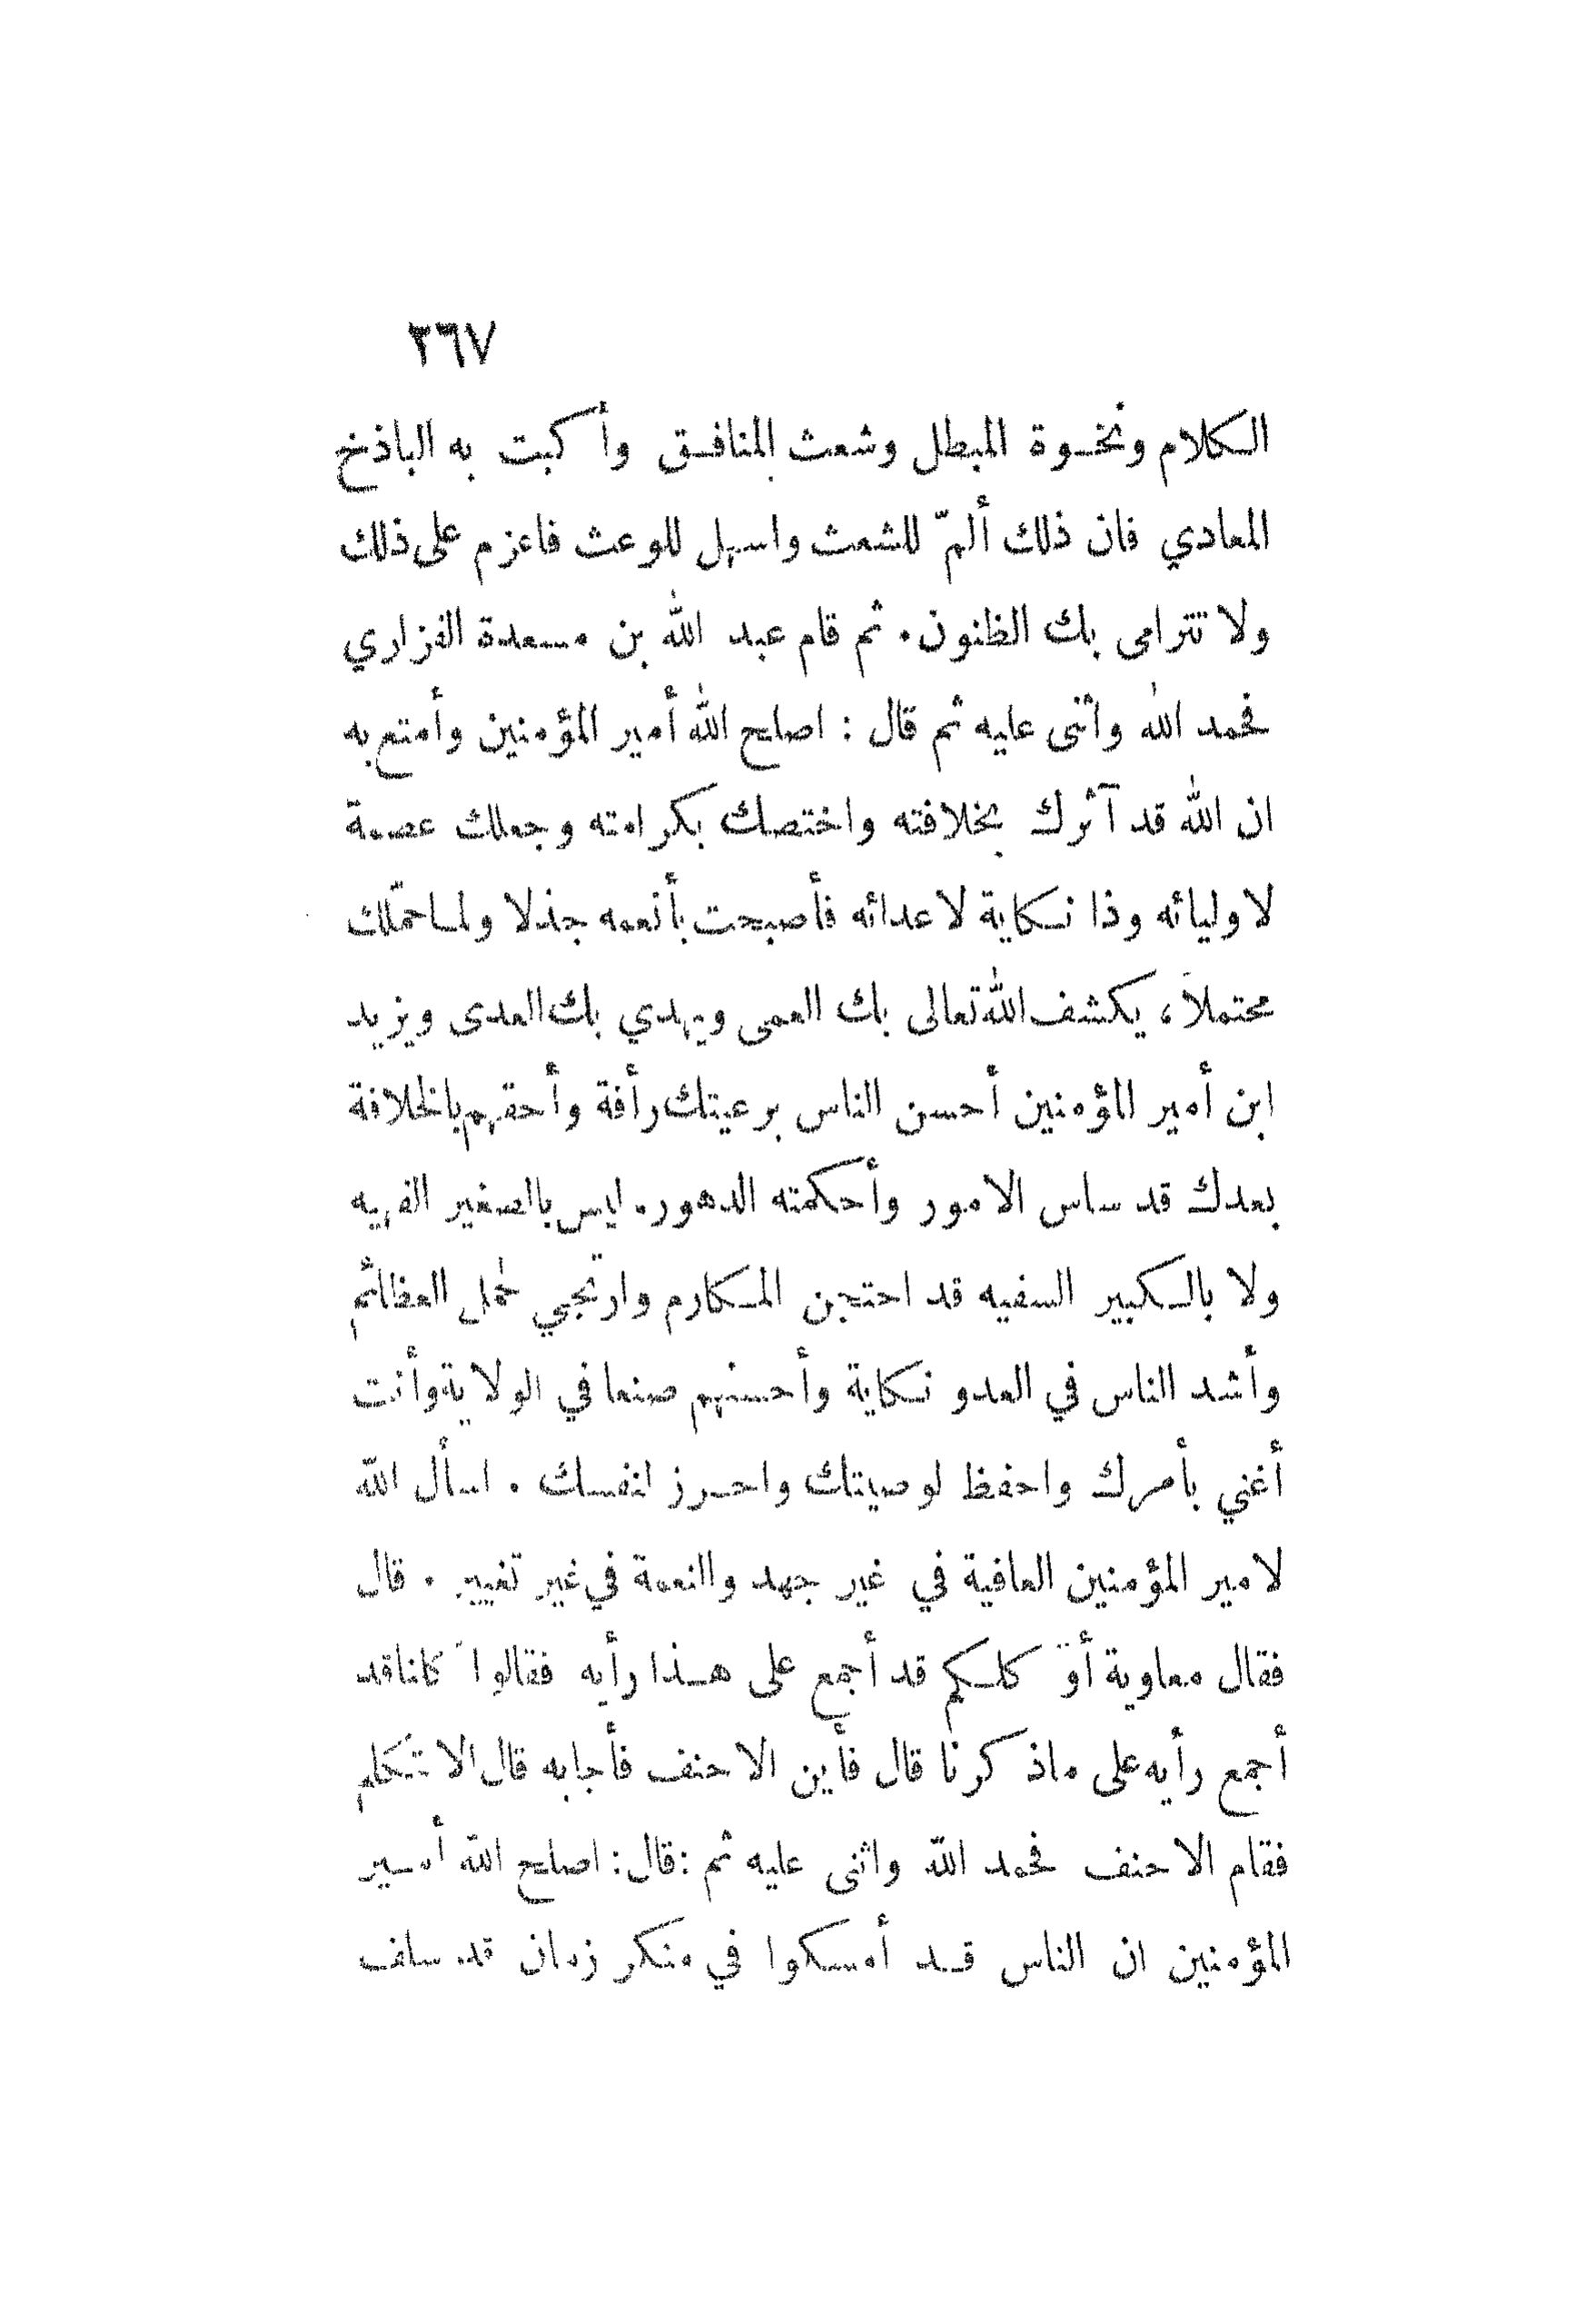 ٢٦٧
الكلام ونخوة المبطل وشعث المنافق وأكبت به الباذخ
المعادي فان ذلك ألمّ للشعث واسهل للوعث فاعزم على ذلك
ولا تترامى بك الظنون. ثم قام عبد الله بن مسعدة الفزاري
فحمد الله واثنى عليه ثم قال : اصلح الله أمير المؤمنين وأمتع به
ان الله قد آثرك بخلافته واختصك بكرامته وجعلك عصمة
لاوليائه وذا نكاية لاعدائه فأصبحت بأنعمه جذلا ولما حمّلك
محتملاً، يكشف الله تعالى بك العمى ويهدي بك العدى ويزيد
ابن أمير المؤمنين أحسن الناس برعيتك رأفة وأحقهم بالخلافة
بعدك قد ساس الامور وأحكمته الدهور. ليس بالصغير الفهيه
ولا بالكبير السفيه قد احتجن المكارم وارتجي لحمل العظائم
وأشد الناس في العدو نكاية وأحسنهم صنعا في الولاية وأنت
أغني بأمرك واحفظ لوصيتك واحرز لنفسك . اسأل الله
لامير المؤمنين العافية في غير جهد والنعمة في غير تغيير . قال
فقال معاوية أوَ كلكم قد أجمع على هذا رأيه فقالوا كلنا قد
أجمع رأيه على ما ذكرنا قال فأين الاحنف فأجابه قال الا تتكلم
فقام الاحنف فحمد الله واثنى عليه ثم :قال: اصلح الله أمير
المؤمنين ان الناس قد أمسكوا في منكر زمان قد سلف